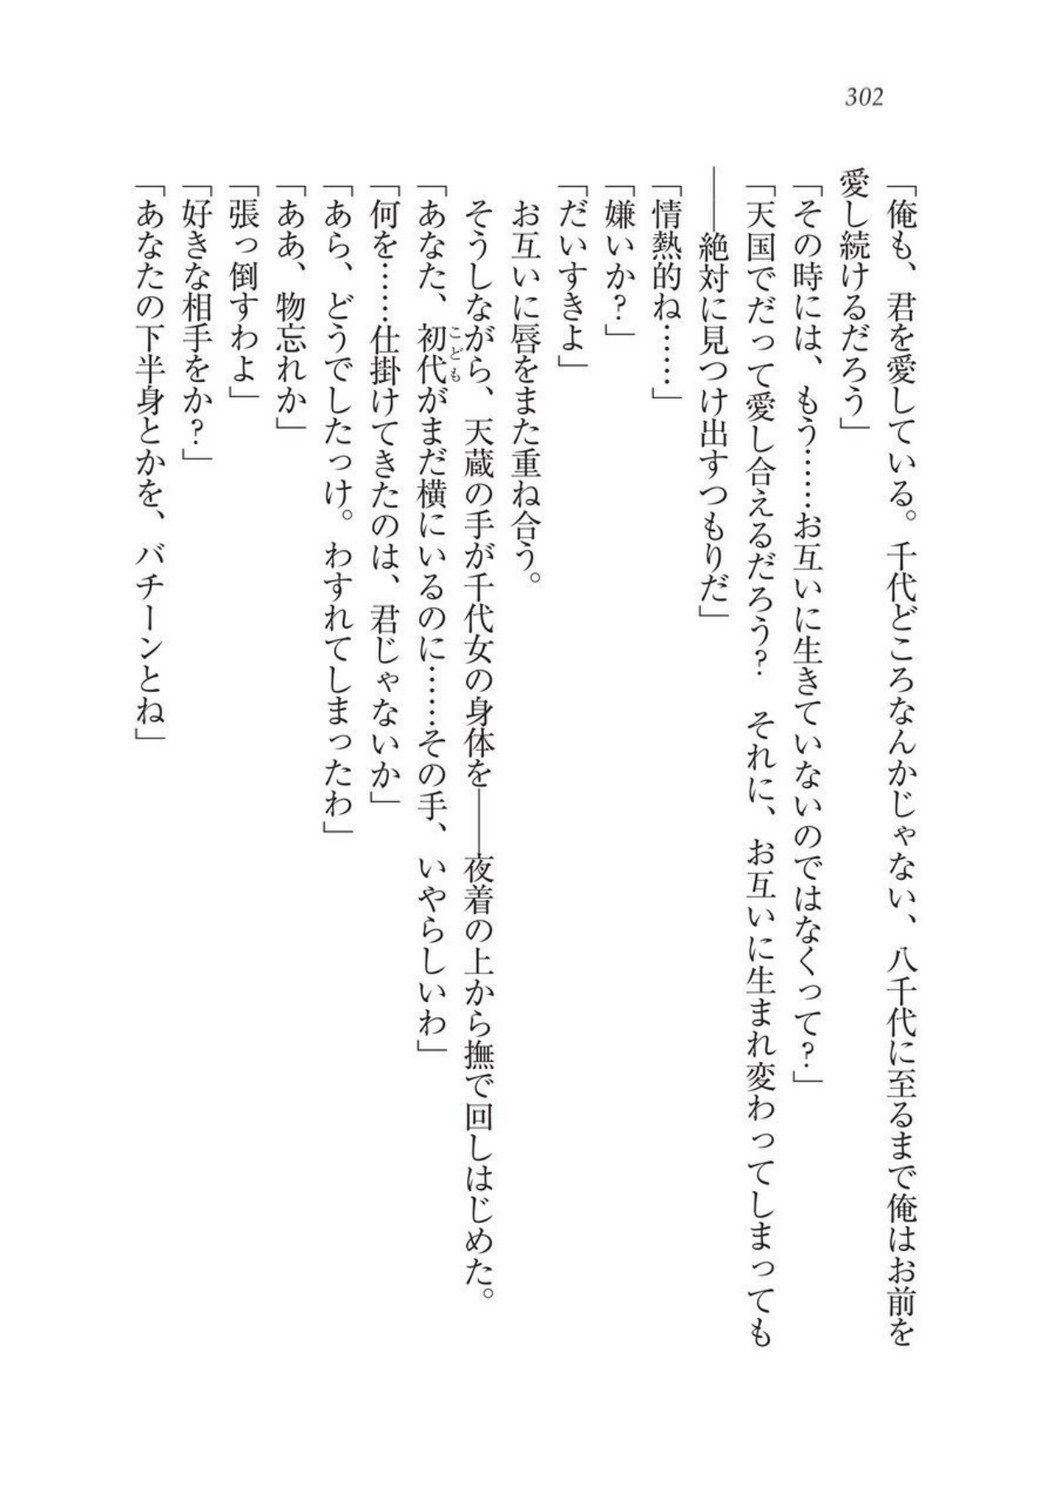 302
「俺も、君を愛している。千代どころなんかじゃない、八千代に至るまで俺はお前を
愛し続けるだろう」
「その時には、もう……お互いに生きていないのではなくって?」
「天国でだって愛し合えるだろう?　それに、お互いに生まれ変わってしまっても
――絶対に見つけ出すつもりだ」
「情熱的ね……」
「嫌いか?」
「だいすきよ」
　お互いに唇をまた重ね合う。
　そうしながら、天蔵の手が千代女の身体を――夜着の上から撫で回しはじめた。
「あなた、初代がまだ横にいるのに……その手、いやらしいわ」
こども
「何を……仕掛けてきたのは、君じゃないか」
「あら、どうでしたっけ。わすれてしまったわ」
「ああ、物忘れか」
「張っ倒すわよ」
「好きな相手をか?」
「あなたの下半身とかを、バチーンとね」